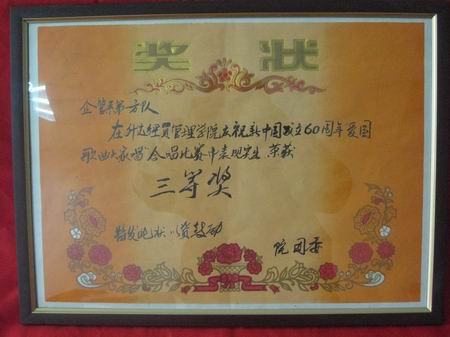 奖状
企管系第一方队
在外经贸管理学院庆祝新中国成立60周年爱国
歌曲大家唱合唱比赛中表现突出 荣获
三等奖
特发此状 以资鼓励
院团委